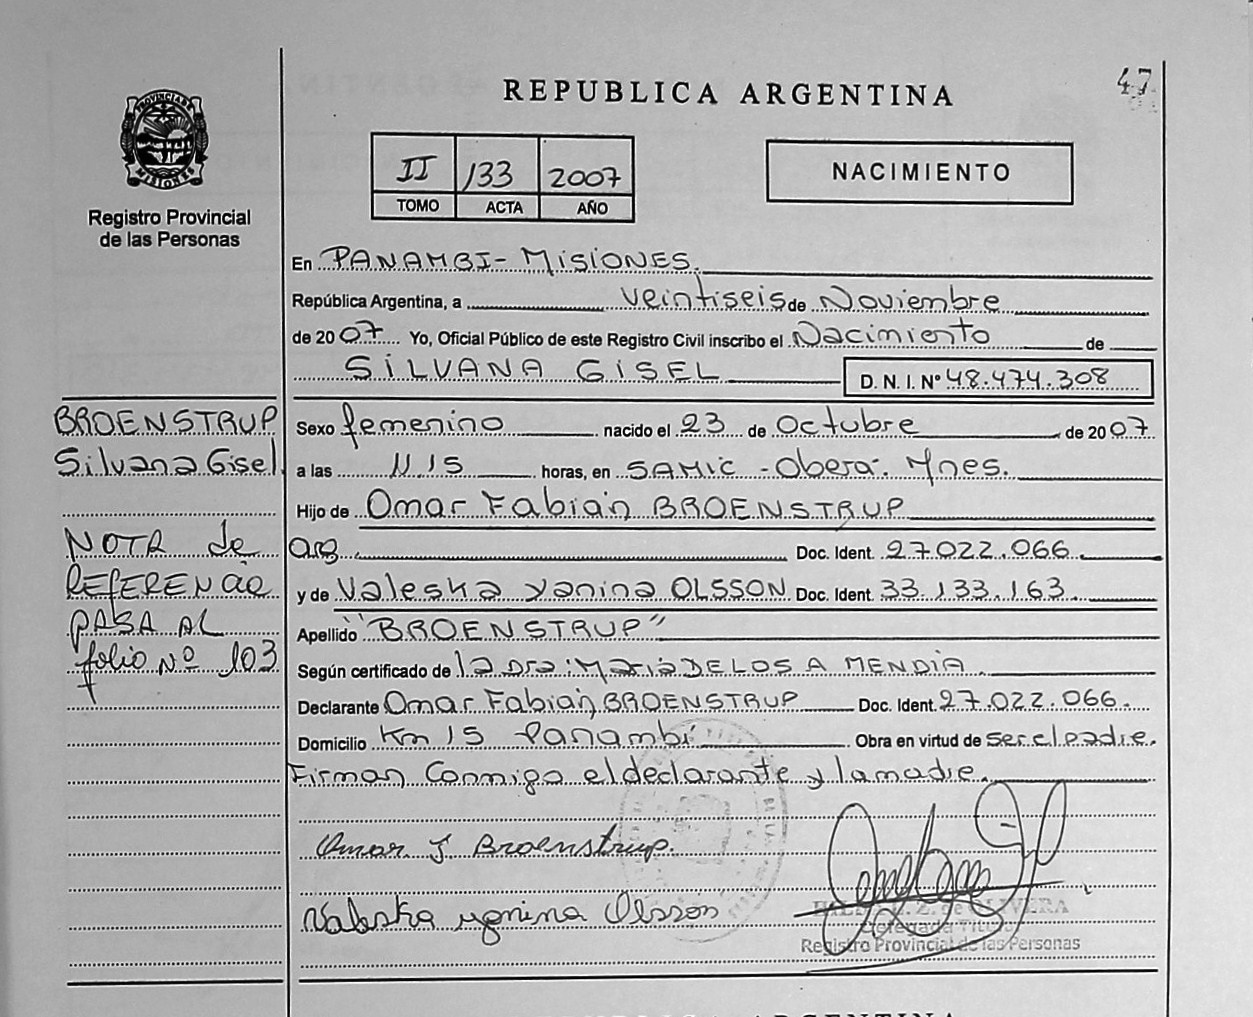 47
REPUBLICA ARGENTINA
PROVINCIA DE
MISIONES
Registro Provincial
de las Personas
II 133 2007
TOMO ACTA AÑO
NACIMIENTO
En PANAMBI - MISIONES.
República Argentina, a veintiseis de Noviembre
de 2007 Yo, Oficial Público de este Registro Civil inscribo el Nacimiento de
SILVANA GISEL D. N. I. Nº 48.474.308
BROENSTRUP
Silvana Gisel
Sexo femenino nacido el 23 de Octubre de 2007
a las 11 15 horas, en SAMIC - Oberá. Mnes.
Hijo de Omar Fabián BROENSTRUP
Arg. Doc. Ident. 27.022.066
y de Valeska Yanina OLSSON Doc. Ident. 33.133.163.
NOTA de
REFERENCIA
PASA AL
folio Nº 103
Apellido "BROENSTRUP"
Según certificado de la Dra: María DE LOS A MENDIA.
Declarante Omar Fabián BROENSTRUP Doc. Ident. 27.022.066.
Domicilio Km 15 Panambí Obra en virtud de ser el padre.
Firman Conmigo el declarante y la madre.
Omar F. Broenstrup.
Valeska yanina Olsson
Z. de OLIVERA
Delegada Titular
Registro Provincial de las Personas
REPUBLICA ARGENTINA